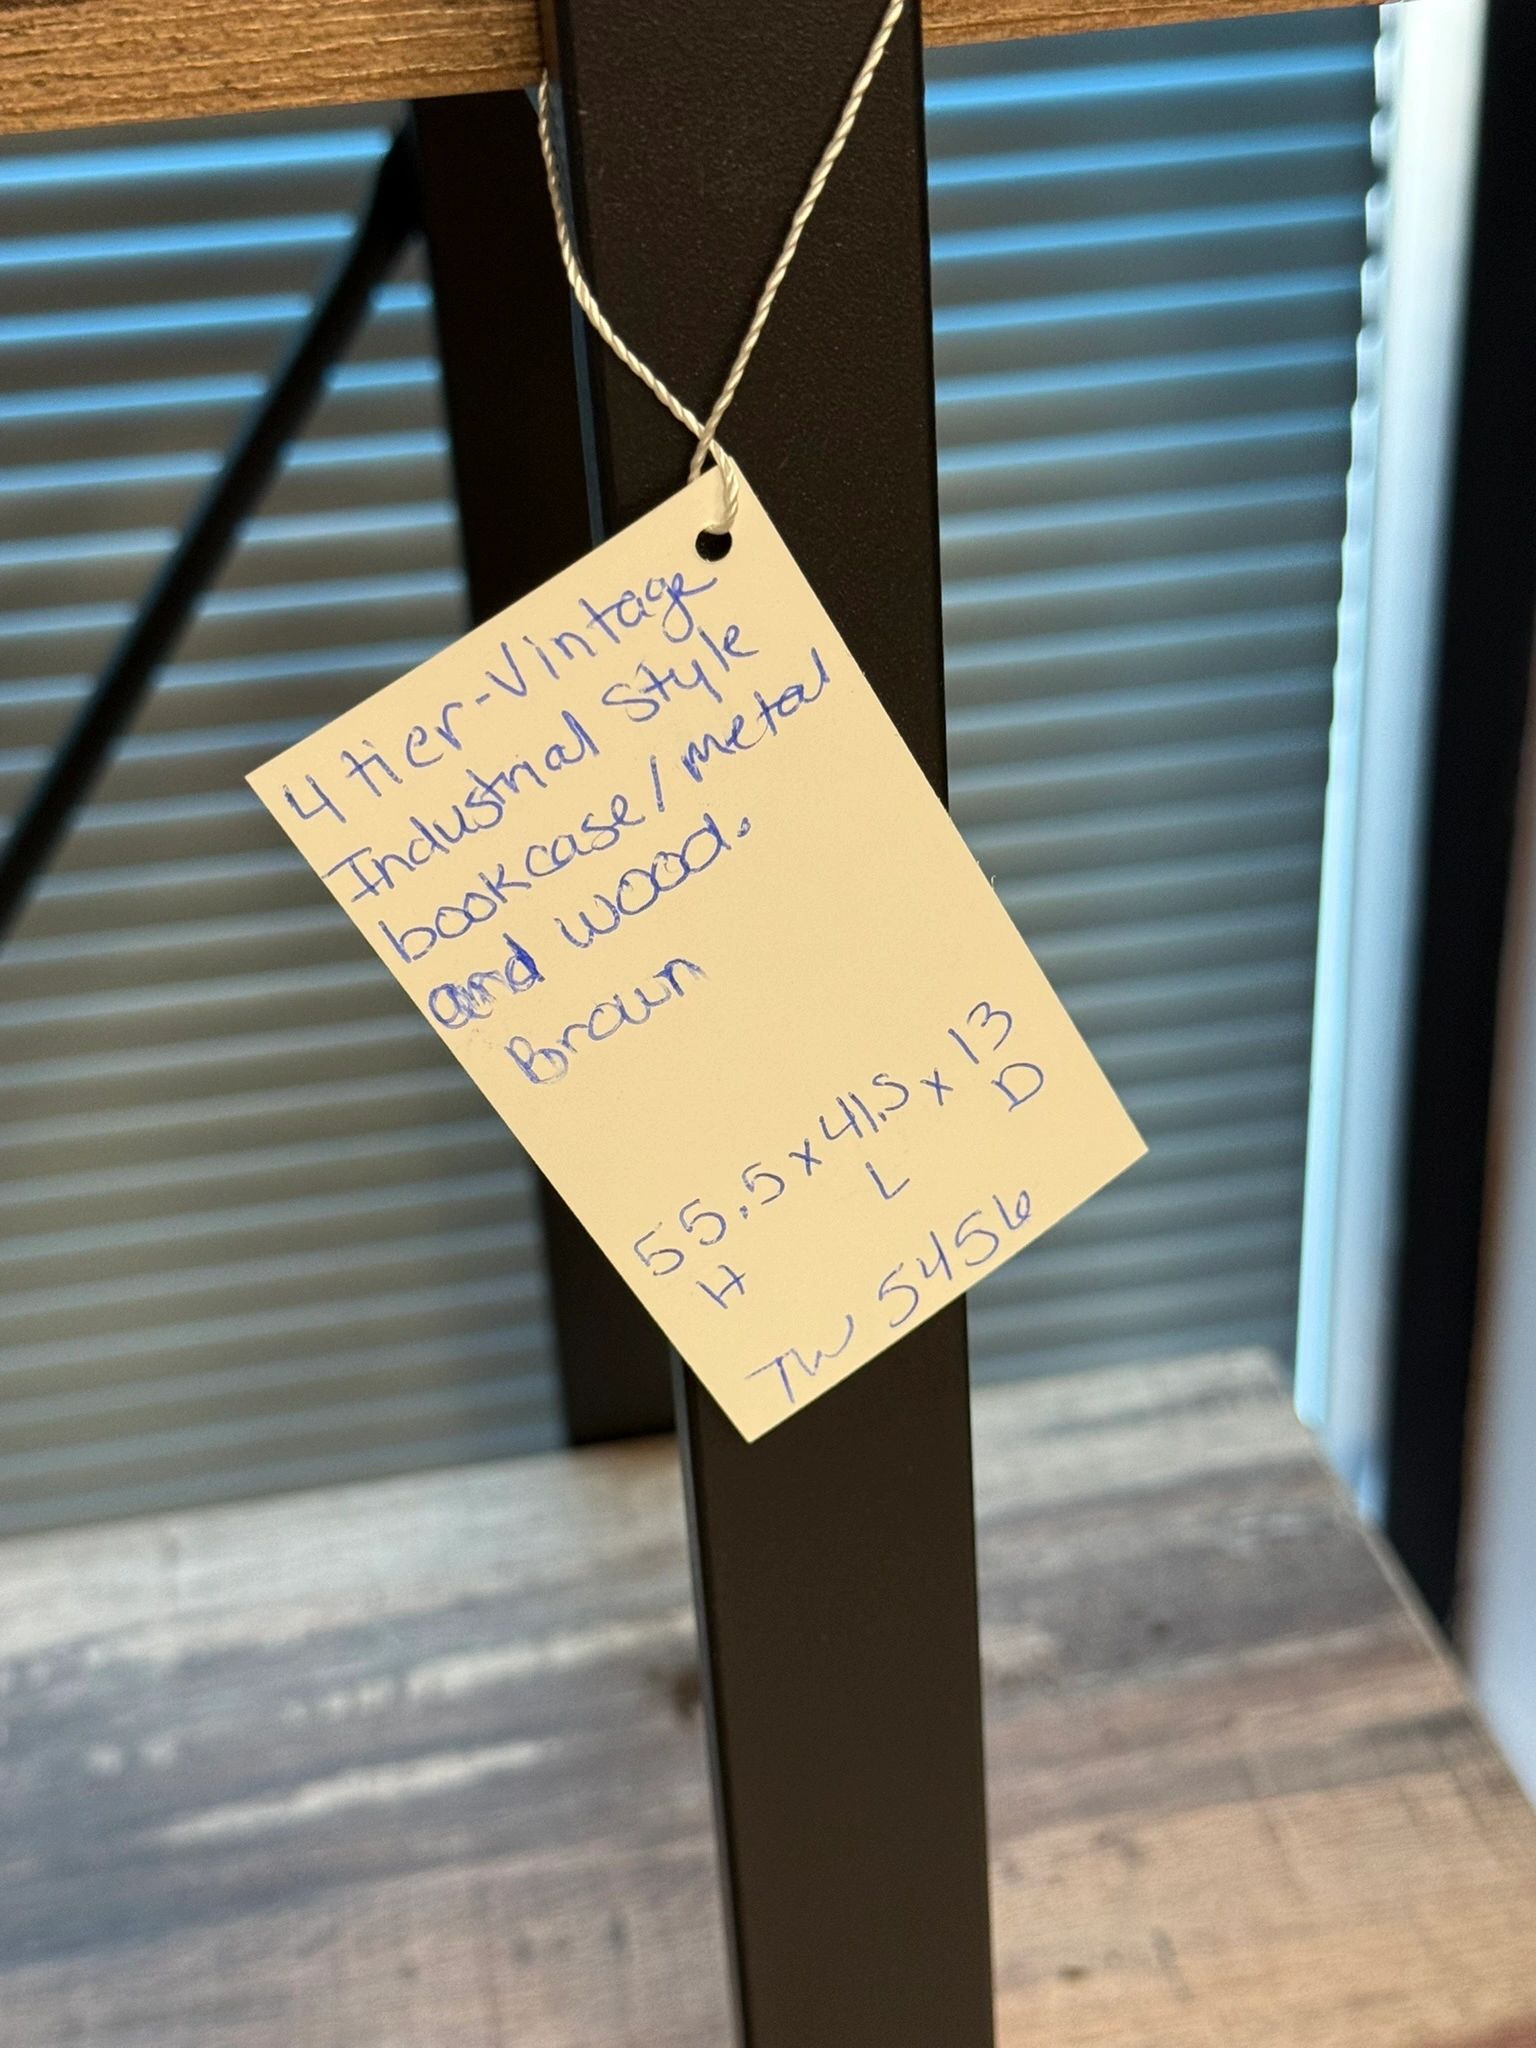 4 tier-Vintage
Industrial Style
bookcase/metal
and wood.
Brown
55.5 x 41.5 x 13
H L D
TW 5456